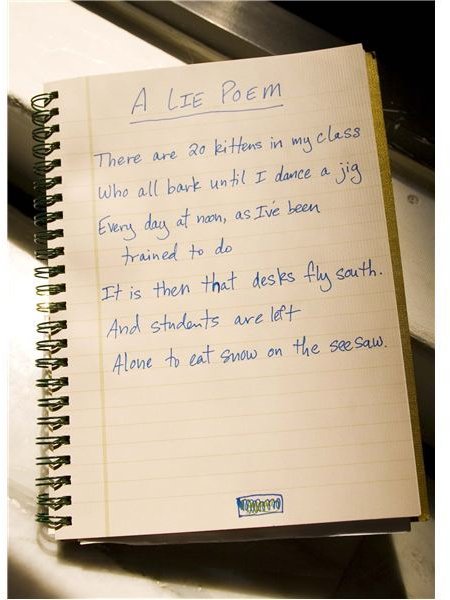 A LIE POEM
There are 20 kittens in my class
Who all bark until I dance a jig
Every day at noon, as I've been
trained to do
It is then that desks fly south.
And students are left
Alone to eat snow on the seesaw.